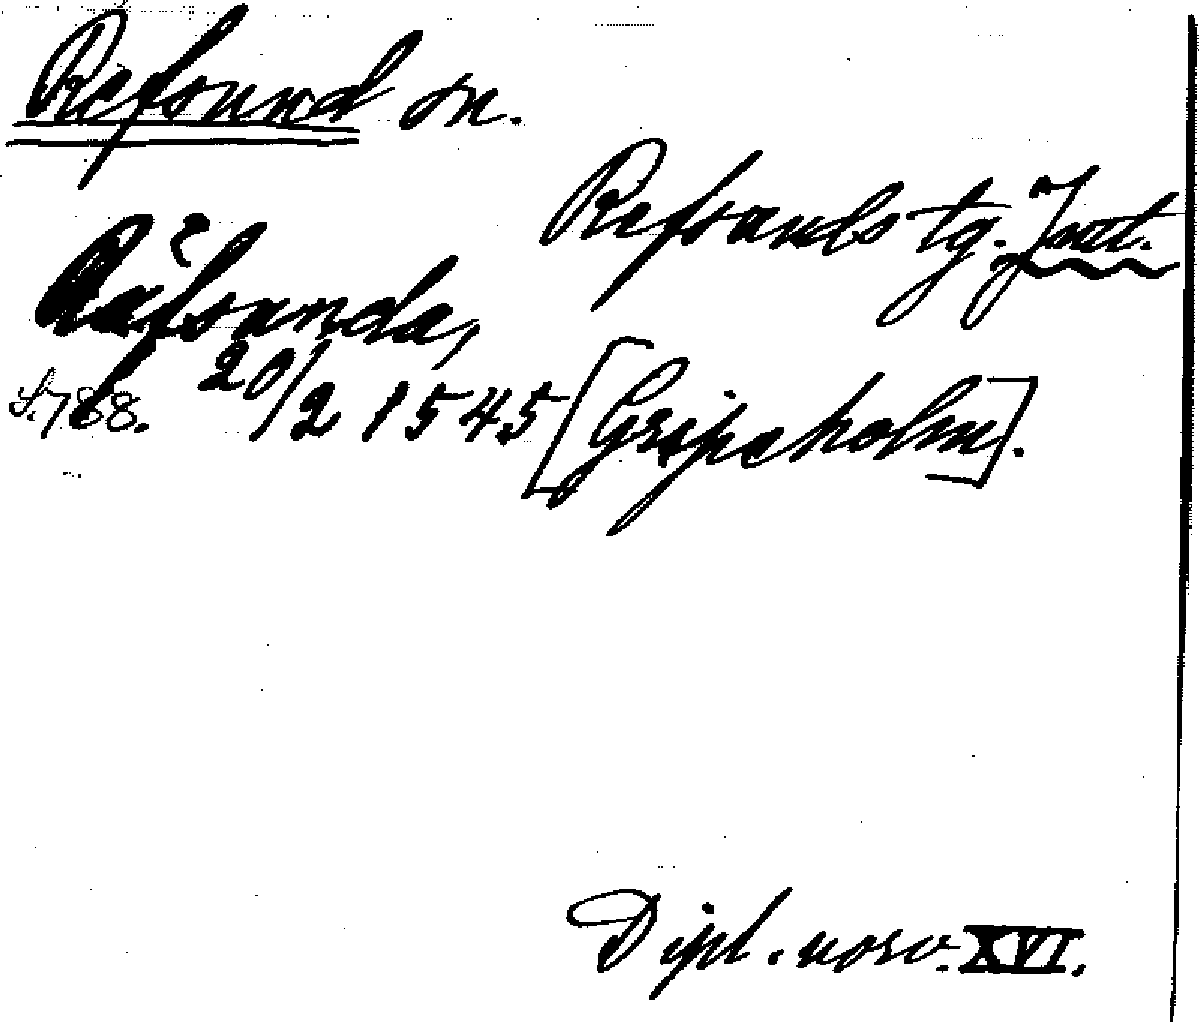 Refsund sn.
Refsunds tg. Jmtl.
Räfsunda,
S. 788. 20/2 1545 [Gripsholm].
Dipl. norv. XVI.